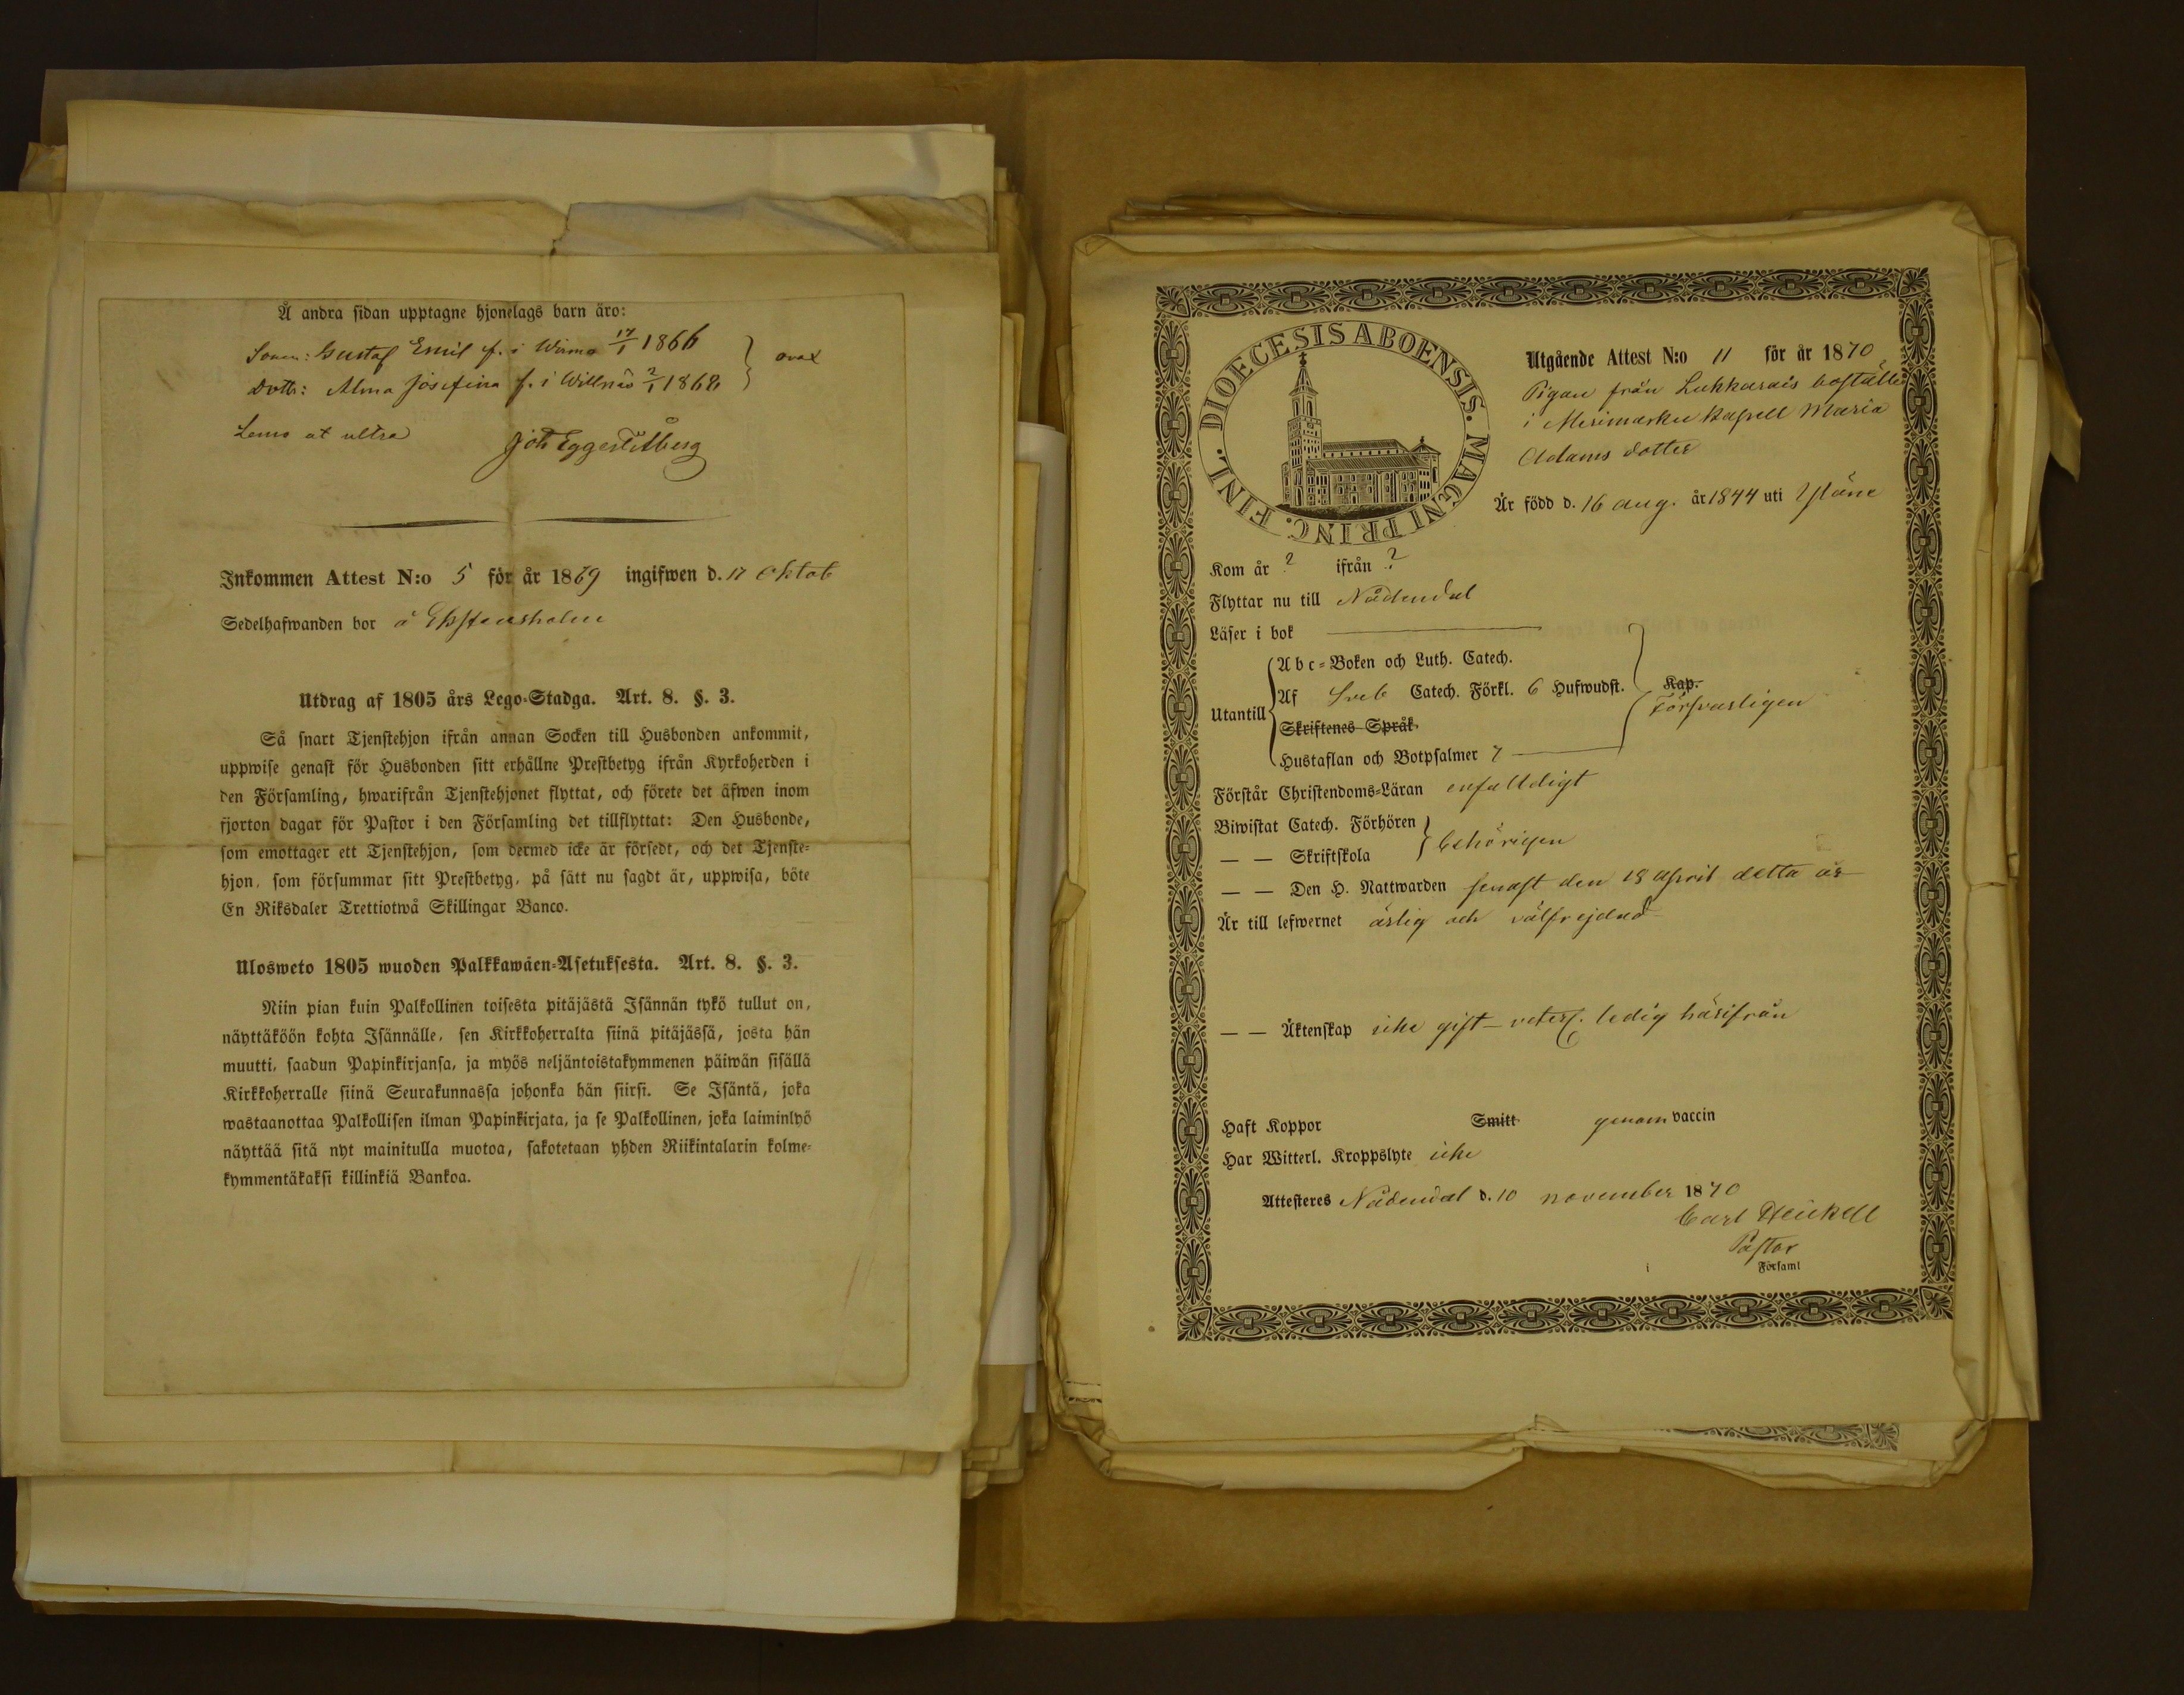 Å andra sidan upptagne hjonelags barn äro:
Sonen: Gustaf Emil f. i Wirmo 17/1 1866
Dottr: Alma Josefina f. i Willnäs 2/1 1868
ovac
Lemo ut ultra
Joh Egger
Inkommen Attest N:o 5 för år 1869 ingifwen d. 17 Oktob
Sedelhafwanden bor å
Utdrag af 1805 års Lego-Stadga. Art. 8. §. 3.
Så snart Tjenstehjon ifrån annan Socken till Husbonden ankommit,
uppwise genast för Husbonden sitt erhållne Prestbetyg ifrån Kyrkoherden i
den Församling, hwarifrån Tjenstehjonet flyttat, och förete det äfwen inom
fjorton dagar för Pastor i den Församling det tillflyttat: Den Husbonde,
som emottager ett Tjenstehjon, som dermed icke är försedt, och det Tjenste-
hjon, som försummar sitt Prestbetyg, på sätt nu sagdt är, uppwisa, böte
En Riksdaler Trettiotwå Skillingar Banco.
Ulosweto 1805 wuoden Palkkawäen-Asetuksesta. Art. 8. §. 3.
Niin pian kuin Palkollinen toisesta pitäjästä Isännän tykö tullut on,
näyttäköön kohta Isännälle, sen Kirkkoherralta siinä pitäjässä, josta hän
muutti, saadun Papinkirjansa, ja myös neljäntoistakymmenen päiwän sisällä
Kirkkoherralle siinä Seurakunnassa johonka hän siirsi. Se Isäntä, joka
wastaanottaa Palkollisen ilman Papinkirjata, ja se Palkollinen, joka laiminlyö
näyttää sitä nyt mainitulla muotoa, sakotetaan yhden Riikintalarin kolme-
kymmentäkaksi killinkiä Bankoa.
DIOECESIS ABOENSIS. MAGNI PRINC. FINL.
Utgående Attest N:o 11 för år 1870
Pigan från Lukkarais boställe
i Merimasku Kapell Maria
Adams dotter
Är född d. 16 aug. år 1844 uti Yläne
Kom år ? ifrån ?
Flyttar nu till Nådendal
Läser i bok
Utantill
Abc-Boken och Luth. Catech.
Af Sveb Catech. Förkl. 6 Hufwudst.
Skriftenes Språk
Hustaflan och Botpsalmer 7
Kap.
Försvarligen
Förstår Christendoms-Läran enfalldigt
Biwistat Catech. Förhören
— — Skriftskola
behörigen
— — Den H. Nattwarden senast den 18 April detta år
Är till lefwernet ärlig och välfrejdad
— — Äktenskap icke gift - ledig härifrån
Haft Koppor Smitt genom vaccin
Har Witterl. Kroppslyte icke
Attesteres Nådendal d. 10 november 1870
Carl Heickell
Pastor
i Församl